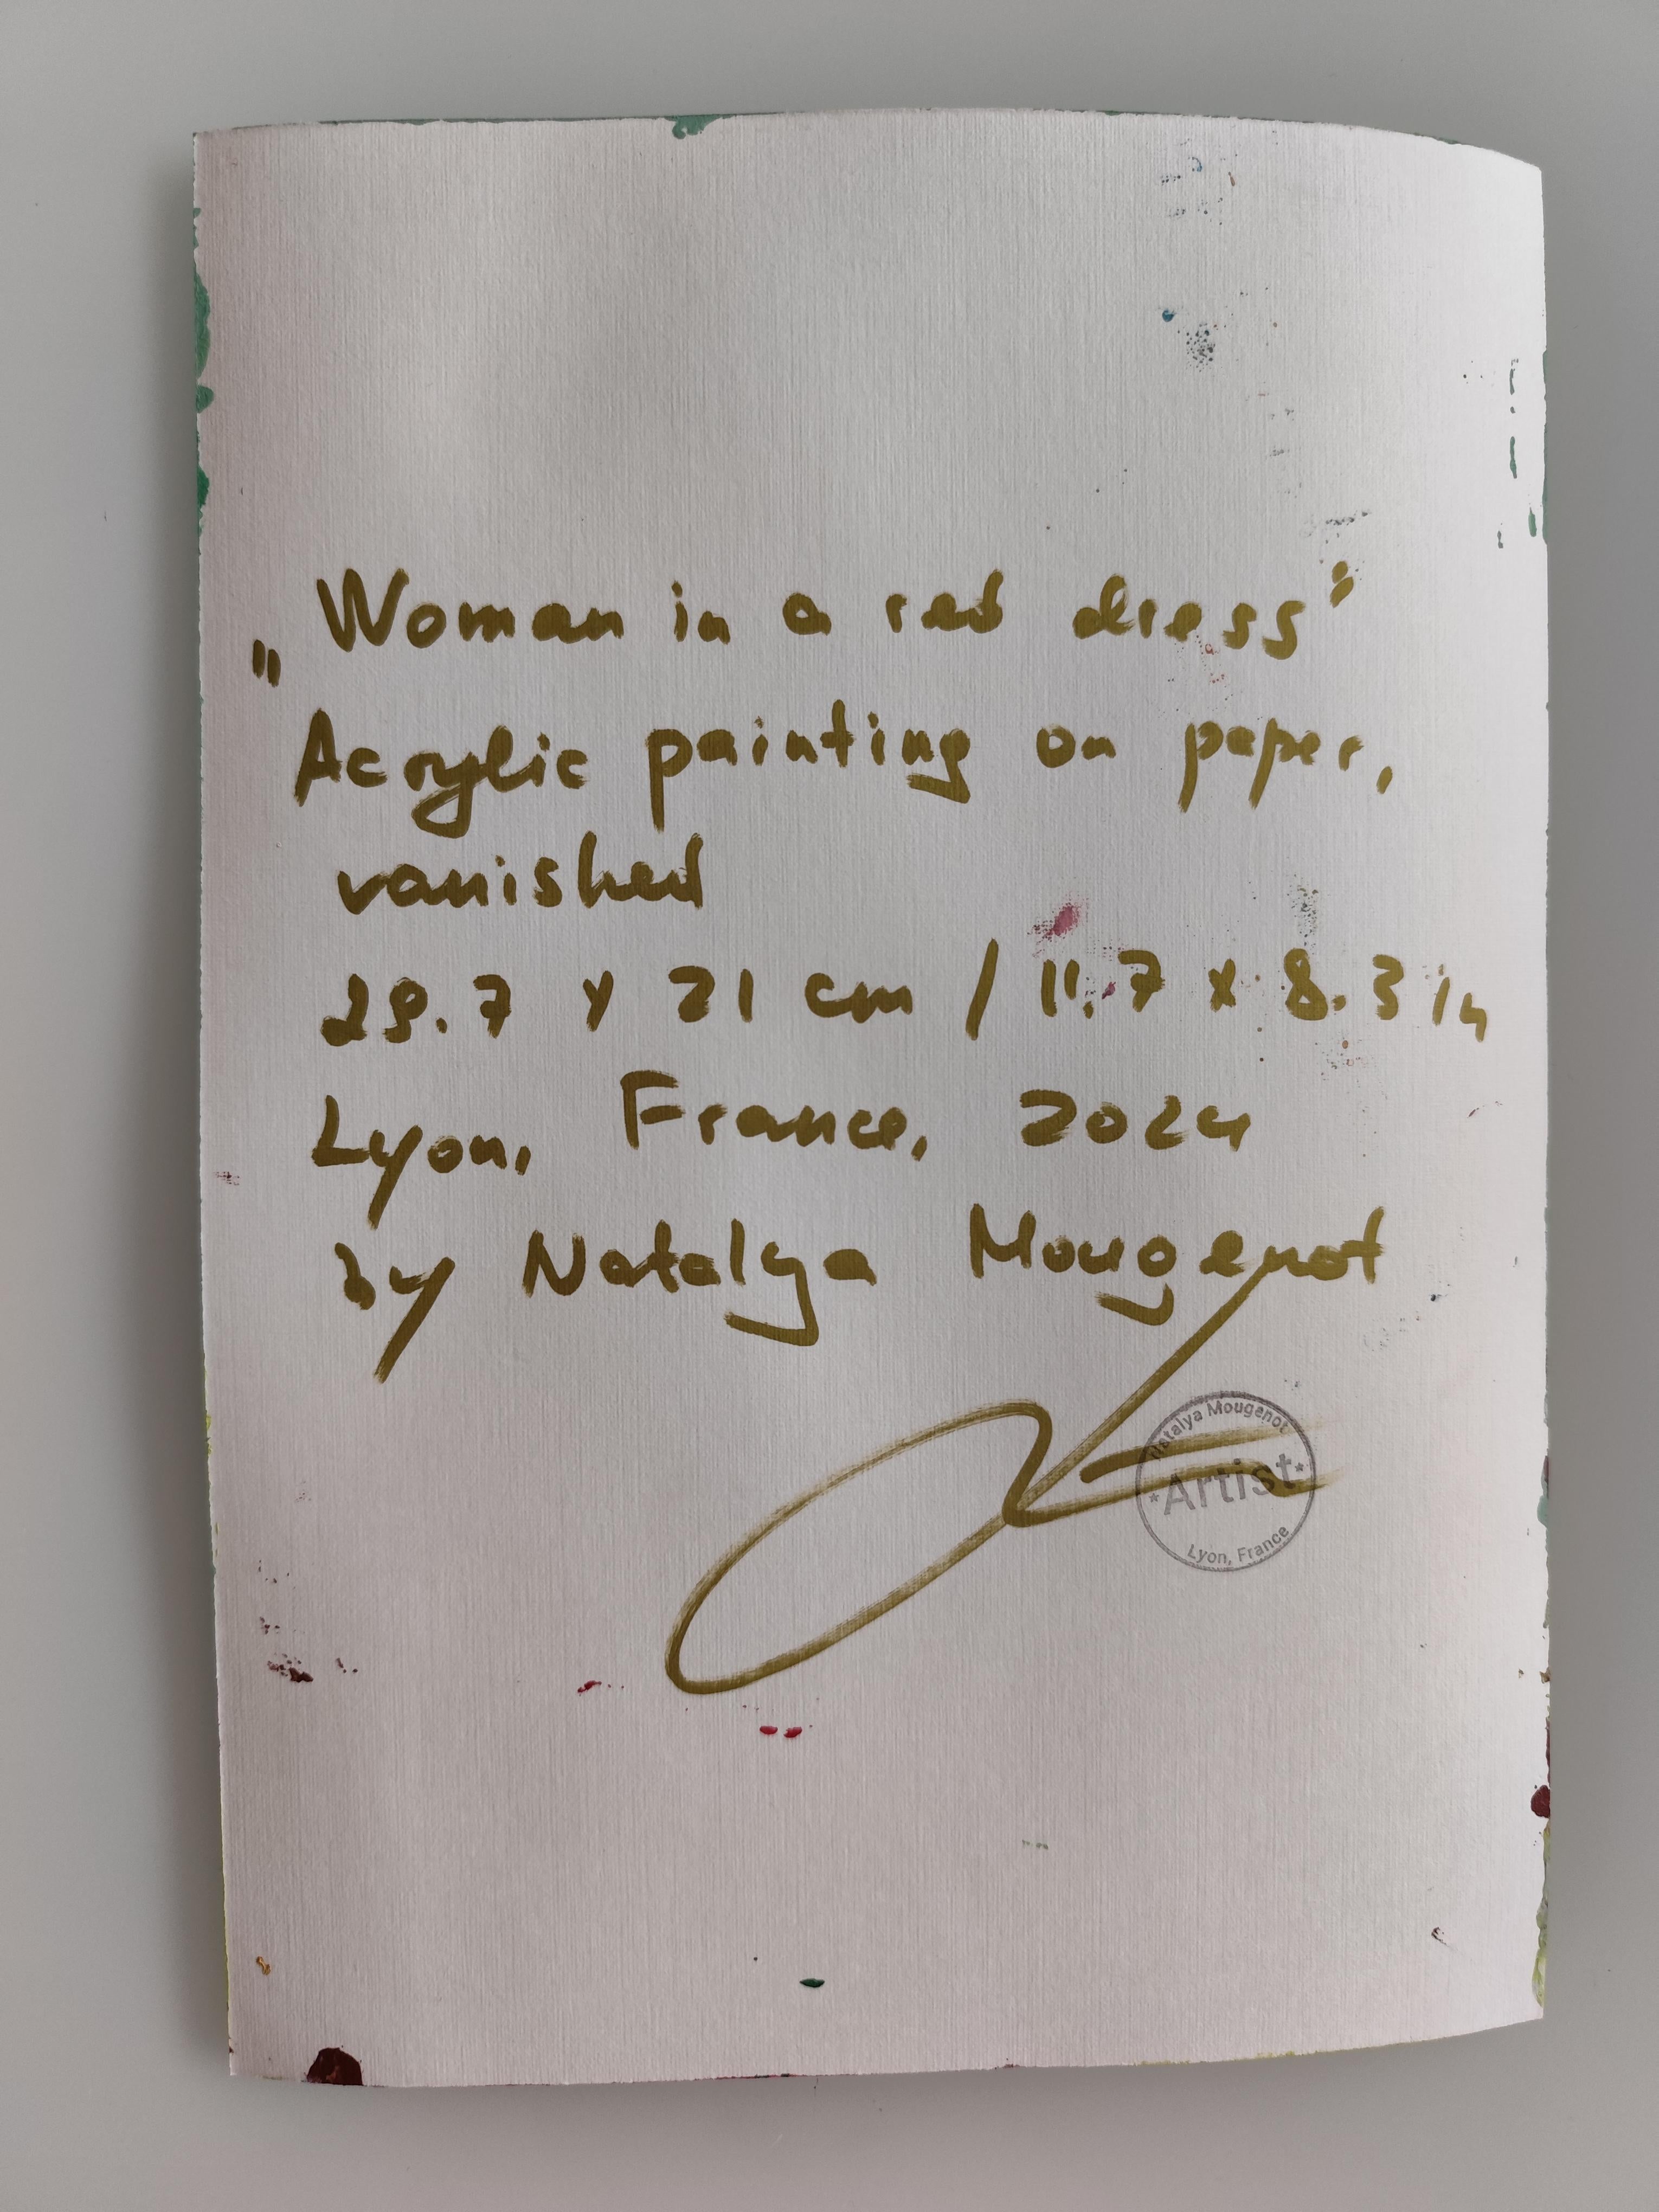 „Woman in a red dress"
Acrylic painting on paper,
vanished
29.7 x 21 cm / 11.7 x 8.3 in
Lyon, France, 2024
by Natalya Mougenot
Natalya Mougenot
*Artist*
Lyon, France